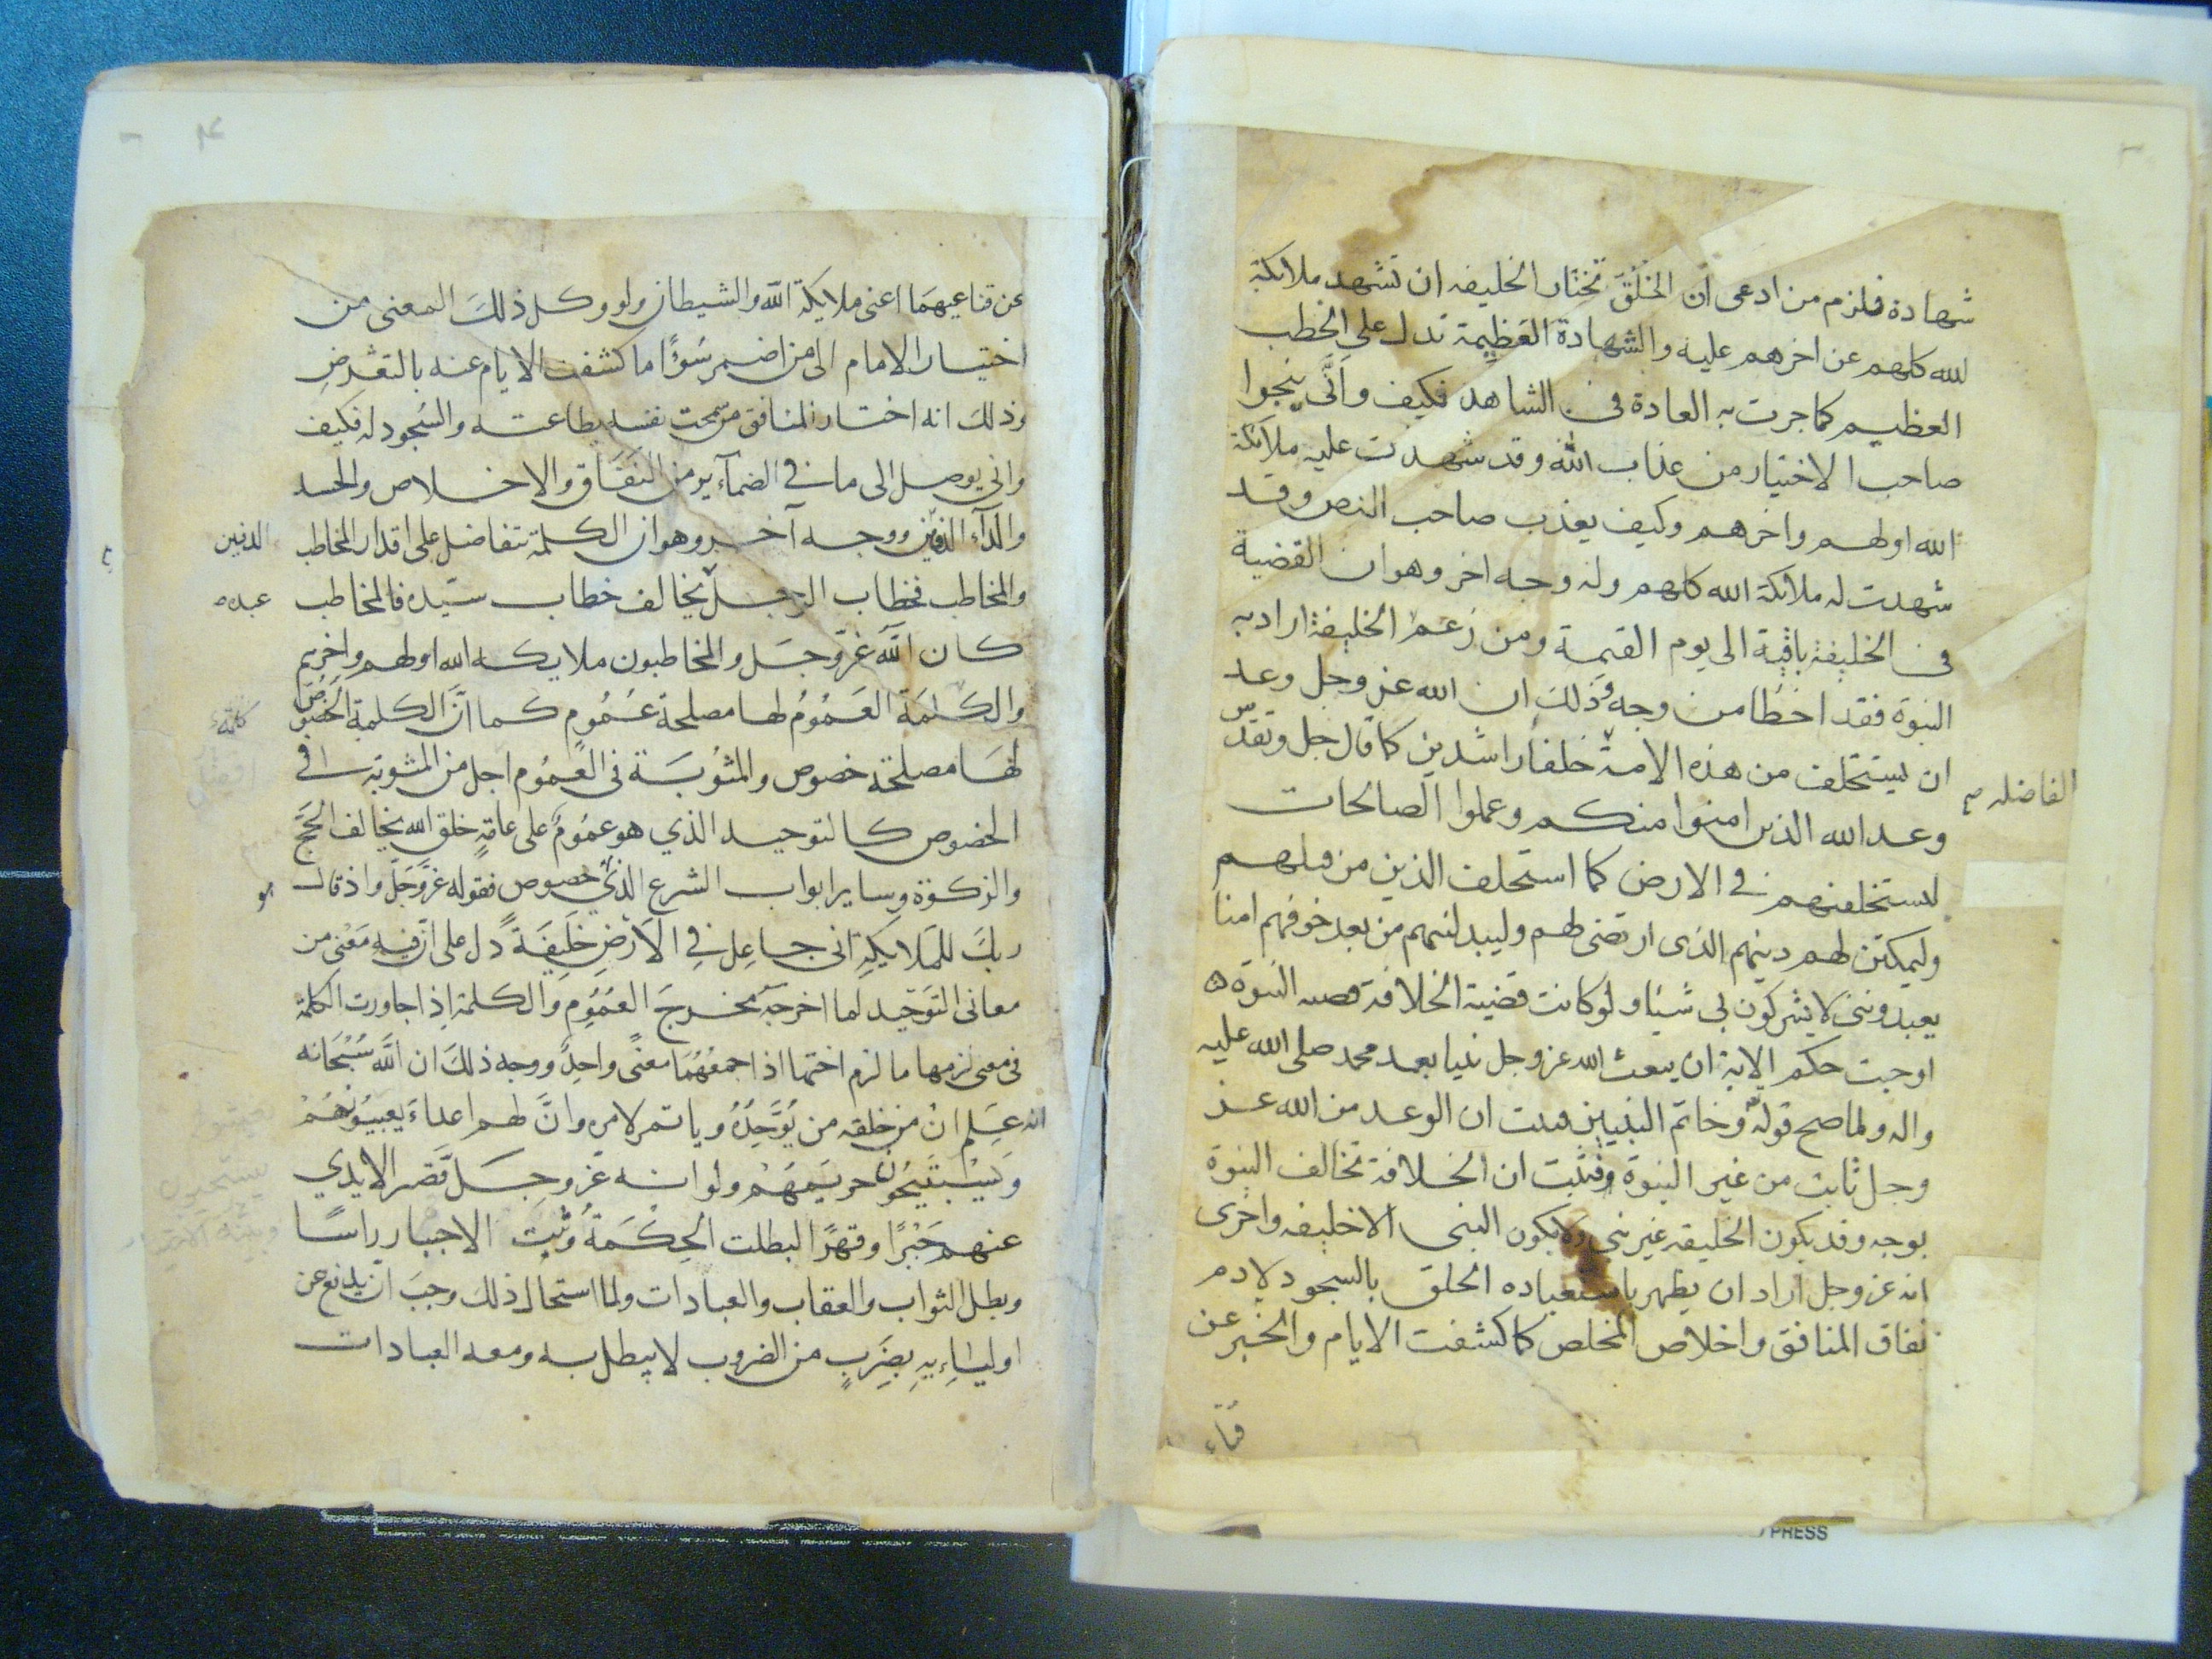 شهادة فلزم من ادعى ان الخلق تختار الخليفه ان تشهد ملائكة
لله كلهم عن اخرهم عليه والشهادة العظيمة تدل على الخطب
العظيم كما جرت به العادة فى الشاهد فكيف وانّى ينجوا
صاحب الاختيار من عذاب الله وقد شهدت عليه ملائكة
الله اولهم واخرهم وكيف يعذب صاحب النص وقد
شهدت له ملائكة الله كلهم وله وجه اخر وهو ان القضية
فى الخليفة باقية الى يوم القيمة ومن زعم الخليفة اراد به
النبوة فقد اخطا من وجه وذلك ان الله عز وجل وعد
ان يستخلف من هذه الامة خلفاء راشدين كما قال جل وتقدس
الفاضله
وعد الله الذين امنوا منكم وعملوا الصالحات
ليستخلفنهم في الارض كما استخلف الذين من قبلهم
وليمكنن لهم دينهم الذى ارتضى لهم وليبدلنهم من بعد خوفهم امنا
يعبدوننى لا يشركون بى شيئا ولو كانت قضية الخلافة قضيه النبوة
اوجبت حكم الاية ان يبعث الله عز وجل نبيا بعد محمد صلى الله عليه
واله ولما صح قوله وخاتم النبيين فثبت ان الوعد من الله عز
وجل ثابت من غير النبوة وثبت ان الخلافة تخالف النبوة
بوجه وقد يكون الخليفه غير نبى ولا يكون النبى الا خليفه واخرى
انه عز وجل اراد ان يظهر باستعباده الخلق بالسجود لادم
نفاق المنافق واخلاص المخلص كما كشفت الايام والخبر عن
قناع
عن قناعيهما اعنى ملايكة الله والشيطان ولو وكل ذلك المعنى من
اختيار الامام الى من اضمر سوءًا ما كشفت الايام عنه بالتعرض
وذلك انه اختار المنافق من سمحت نفسه بطاعته والسجود له فكيف
وانى يوصل الى ما في الضمآير من النفاق والاخلاص والحسد
والدآء الدفين ووجه آخر وهو ان الكلمة تتفاضل على اقدار المخاطب
الدفين
والمخاطب فخطاب الرجل يخالف خطاب سيّده فالمخاطب
عبده
كان الله عزّ وجَل والمخاطبون ملايكه الله اولهم واخرهم
والكلمَة العَمُومُ لها مصلحة عَمُومٍ كما انَّ الكلمة الخُصُوصُ
كلمة
لهَا مصلحة خصوص والمثوبَة فى العمُوم اجل من المثوبة فى
الخصوص كالتوحيد الذي هو عمومٌ على عامّةِ خلق الله يخالف الحَجَّ
والزكوة وساير ابواب الشرع الذي خصوص فقوله عزَّ وَجَلَّ واذ قال
هو
ربكَ للمَلايكةِ انى جاعِل فِي الاَرضِ خَلِيفَةً دل على انّ فيه مَعْنى من
معانى التوحيد لما اخرجه مخرجَ العُمُومِ والكلمة اِذا جاورت الكلمة
فى معنى لزمها ما لزم اختها اذا جمعُهُمَا معنًى واحِدٌ ووجه ذلكَ ان اللَّه سُبْحَانه
انه عَلِم انْ من خلقه من يُوَحِّدُهُ وياتمر لامره وانَّ لهم اعداءَ يعيبُونهُمْ
وَيَسْتَبِيحُونَ حريمَهُمْ ولو انه عزّ وجلَّ قَصَر الايدي
عنهم جَبْرًا وقهرًا لبطلت الحِكْمَةُ وثبت الاجبار راسًا
وبطل الثواب والعقاب والعبادات ولما استحال ذلك وجبَ انْ يدفع عن
اوليَاءِيهِ بضَربٍ من الضروب لا يبطل به ومعه العبادات
PRESS